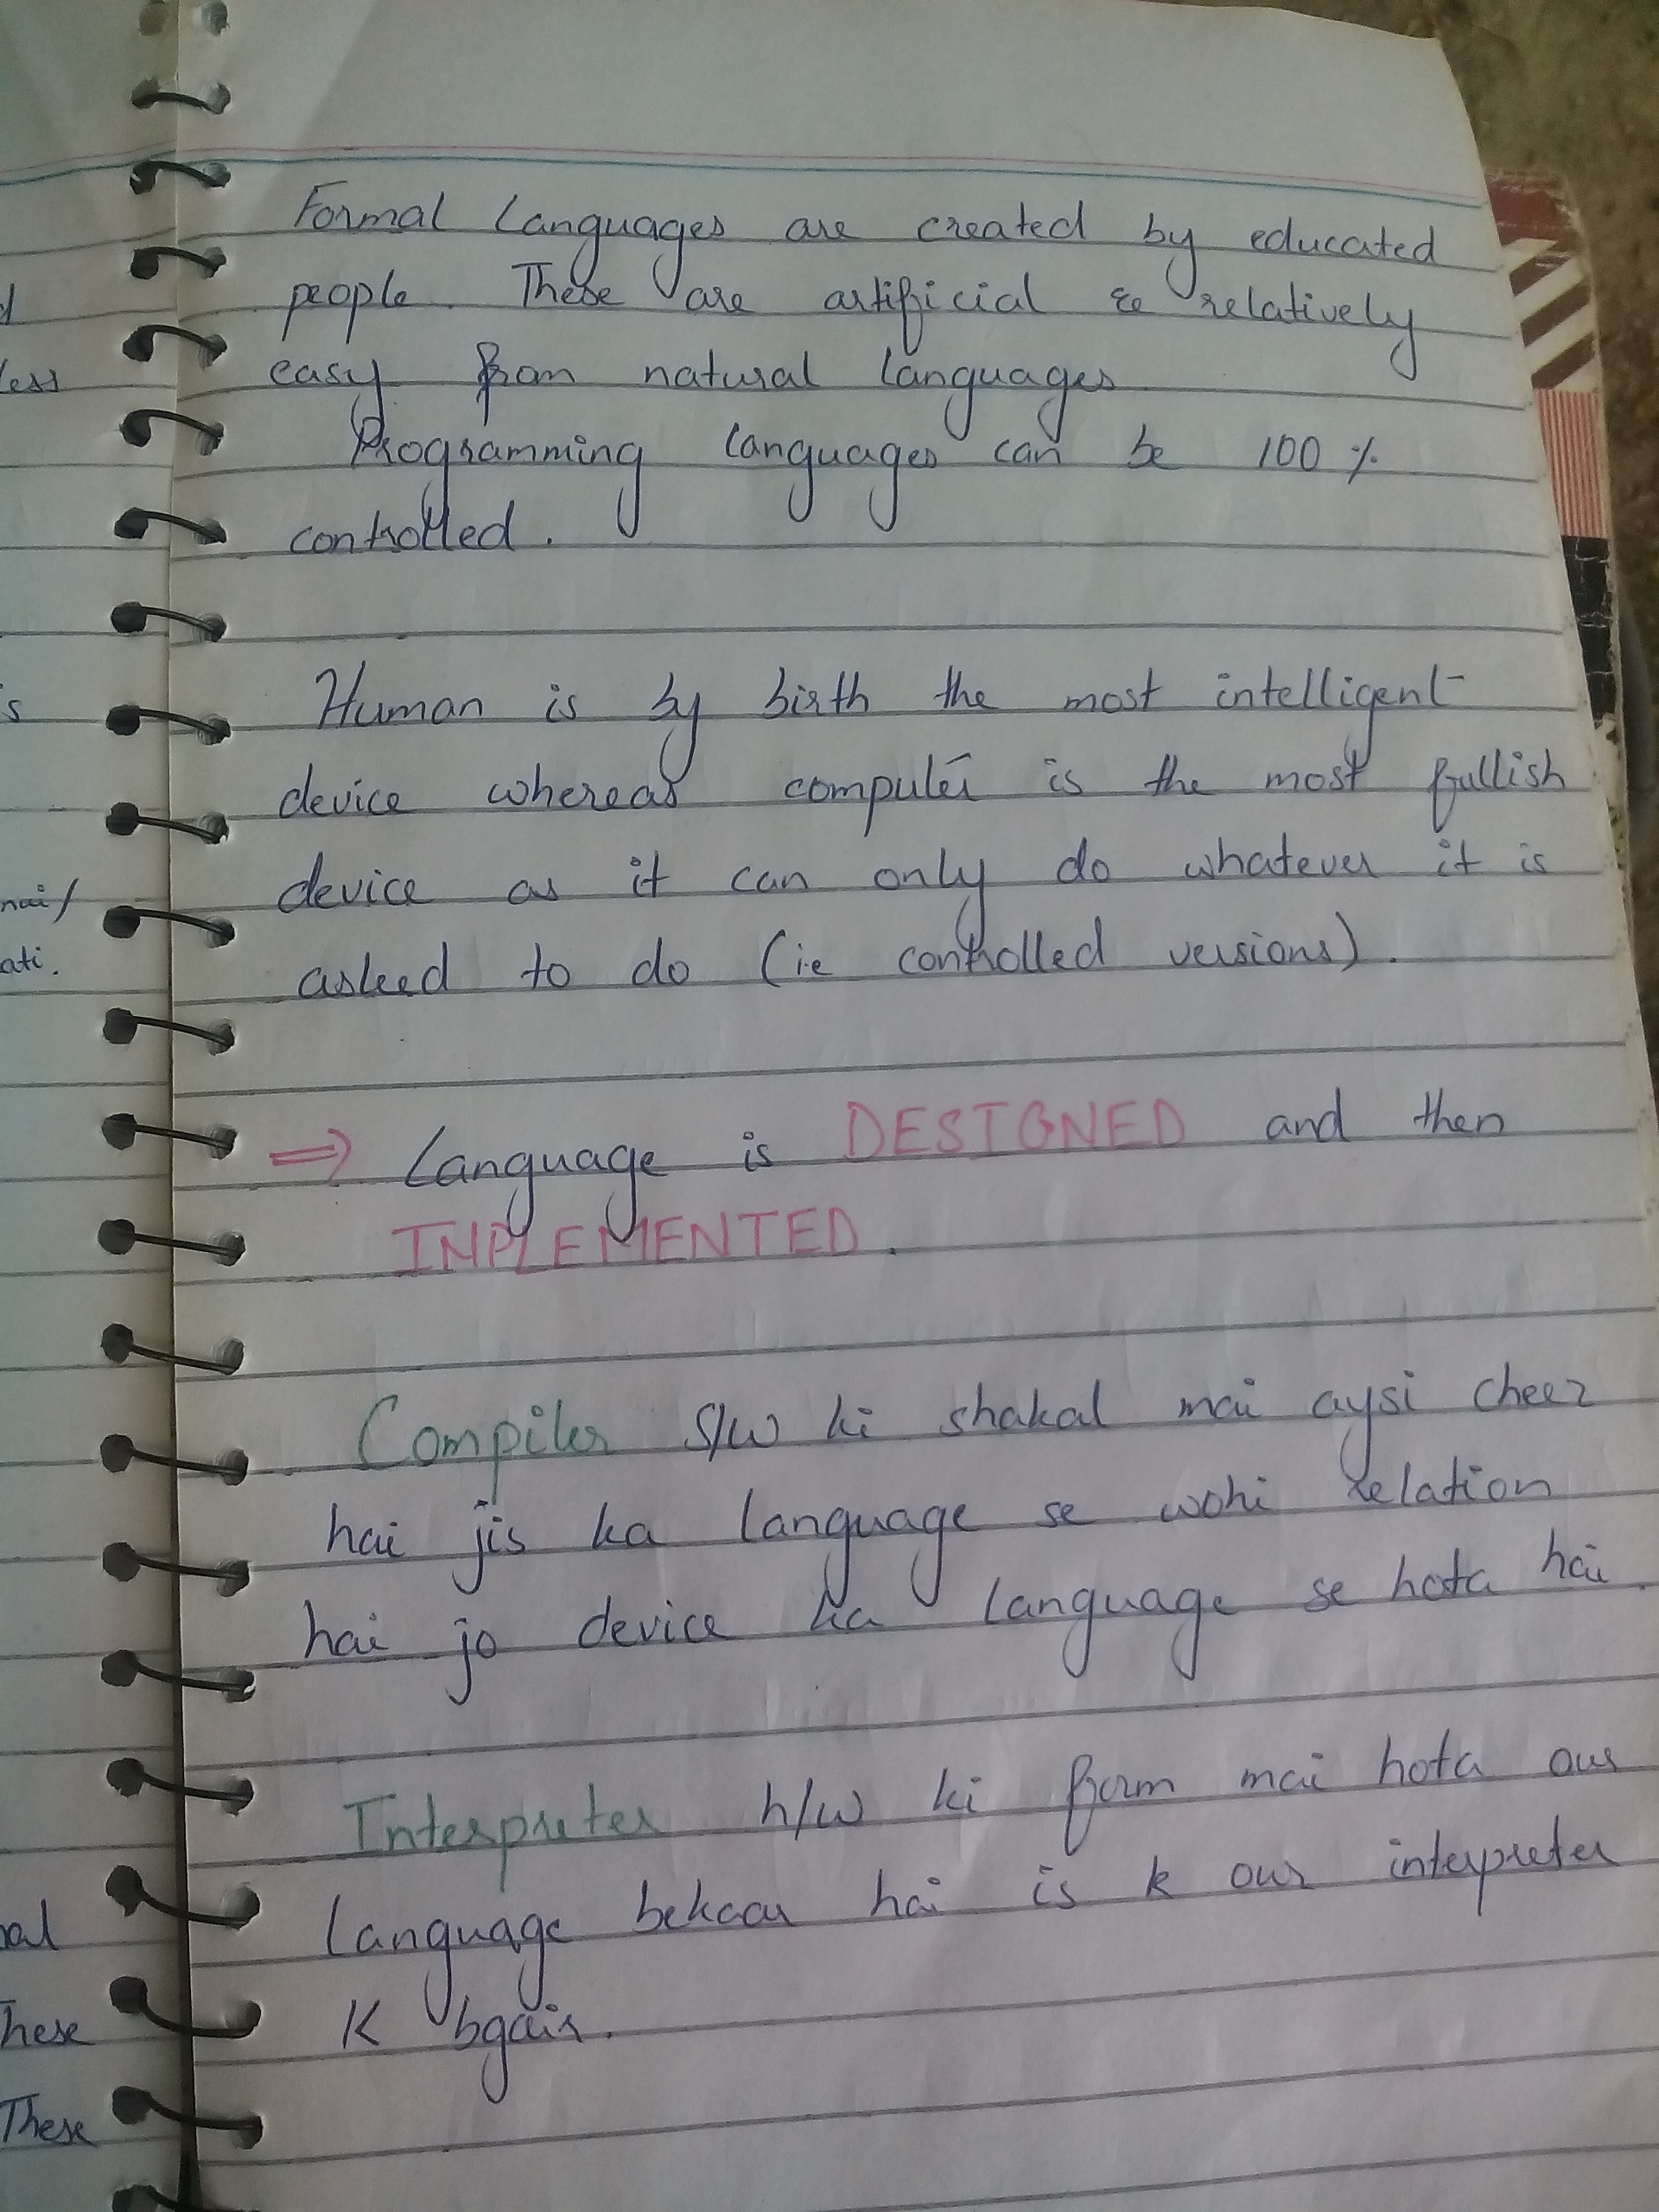 Formal Languages are created by educated
people. These are artificial & relatively
easy from natural languages
Programming languages can be 100 %
controlled.
Human is by birth the most intelligent
device whereas computer is the most fullish
device as it can only do whatever it is
asked to do (i.e controlled versions).
⇒ Language is DESIGNED and then
IMPLEMENTED.
Compiler S/W ki shakal mai aysi cheez
hai jis ka language se wohi relation
hai jo device ka language se hota hai.
Interpreter h/w ki form mai hota our
language bekaar hai is k our interpreter
K bgair.
less
s
mai/
ati.
These
These